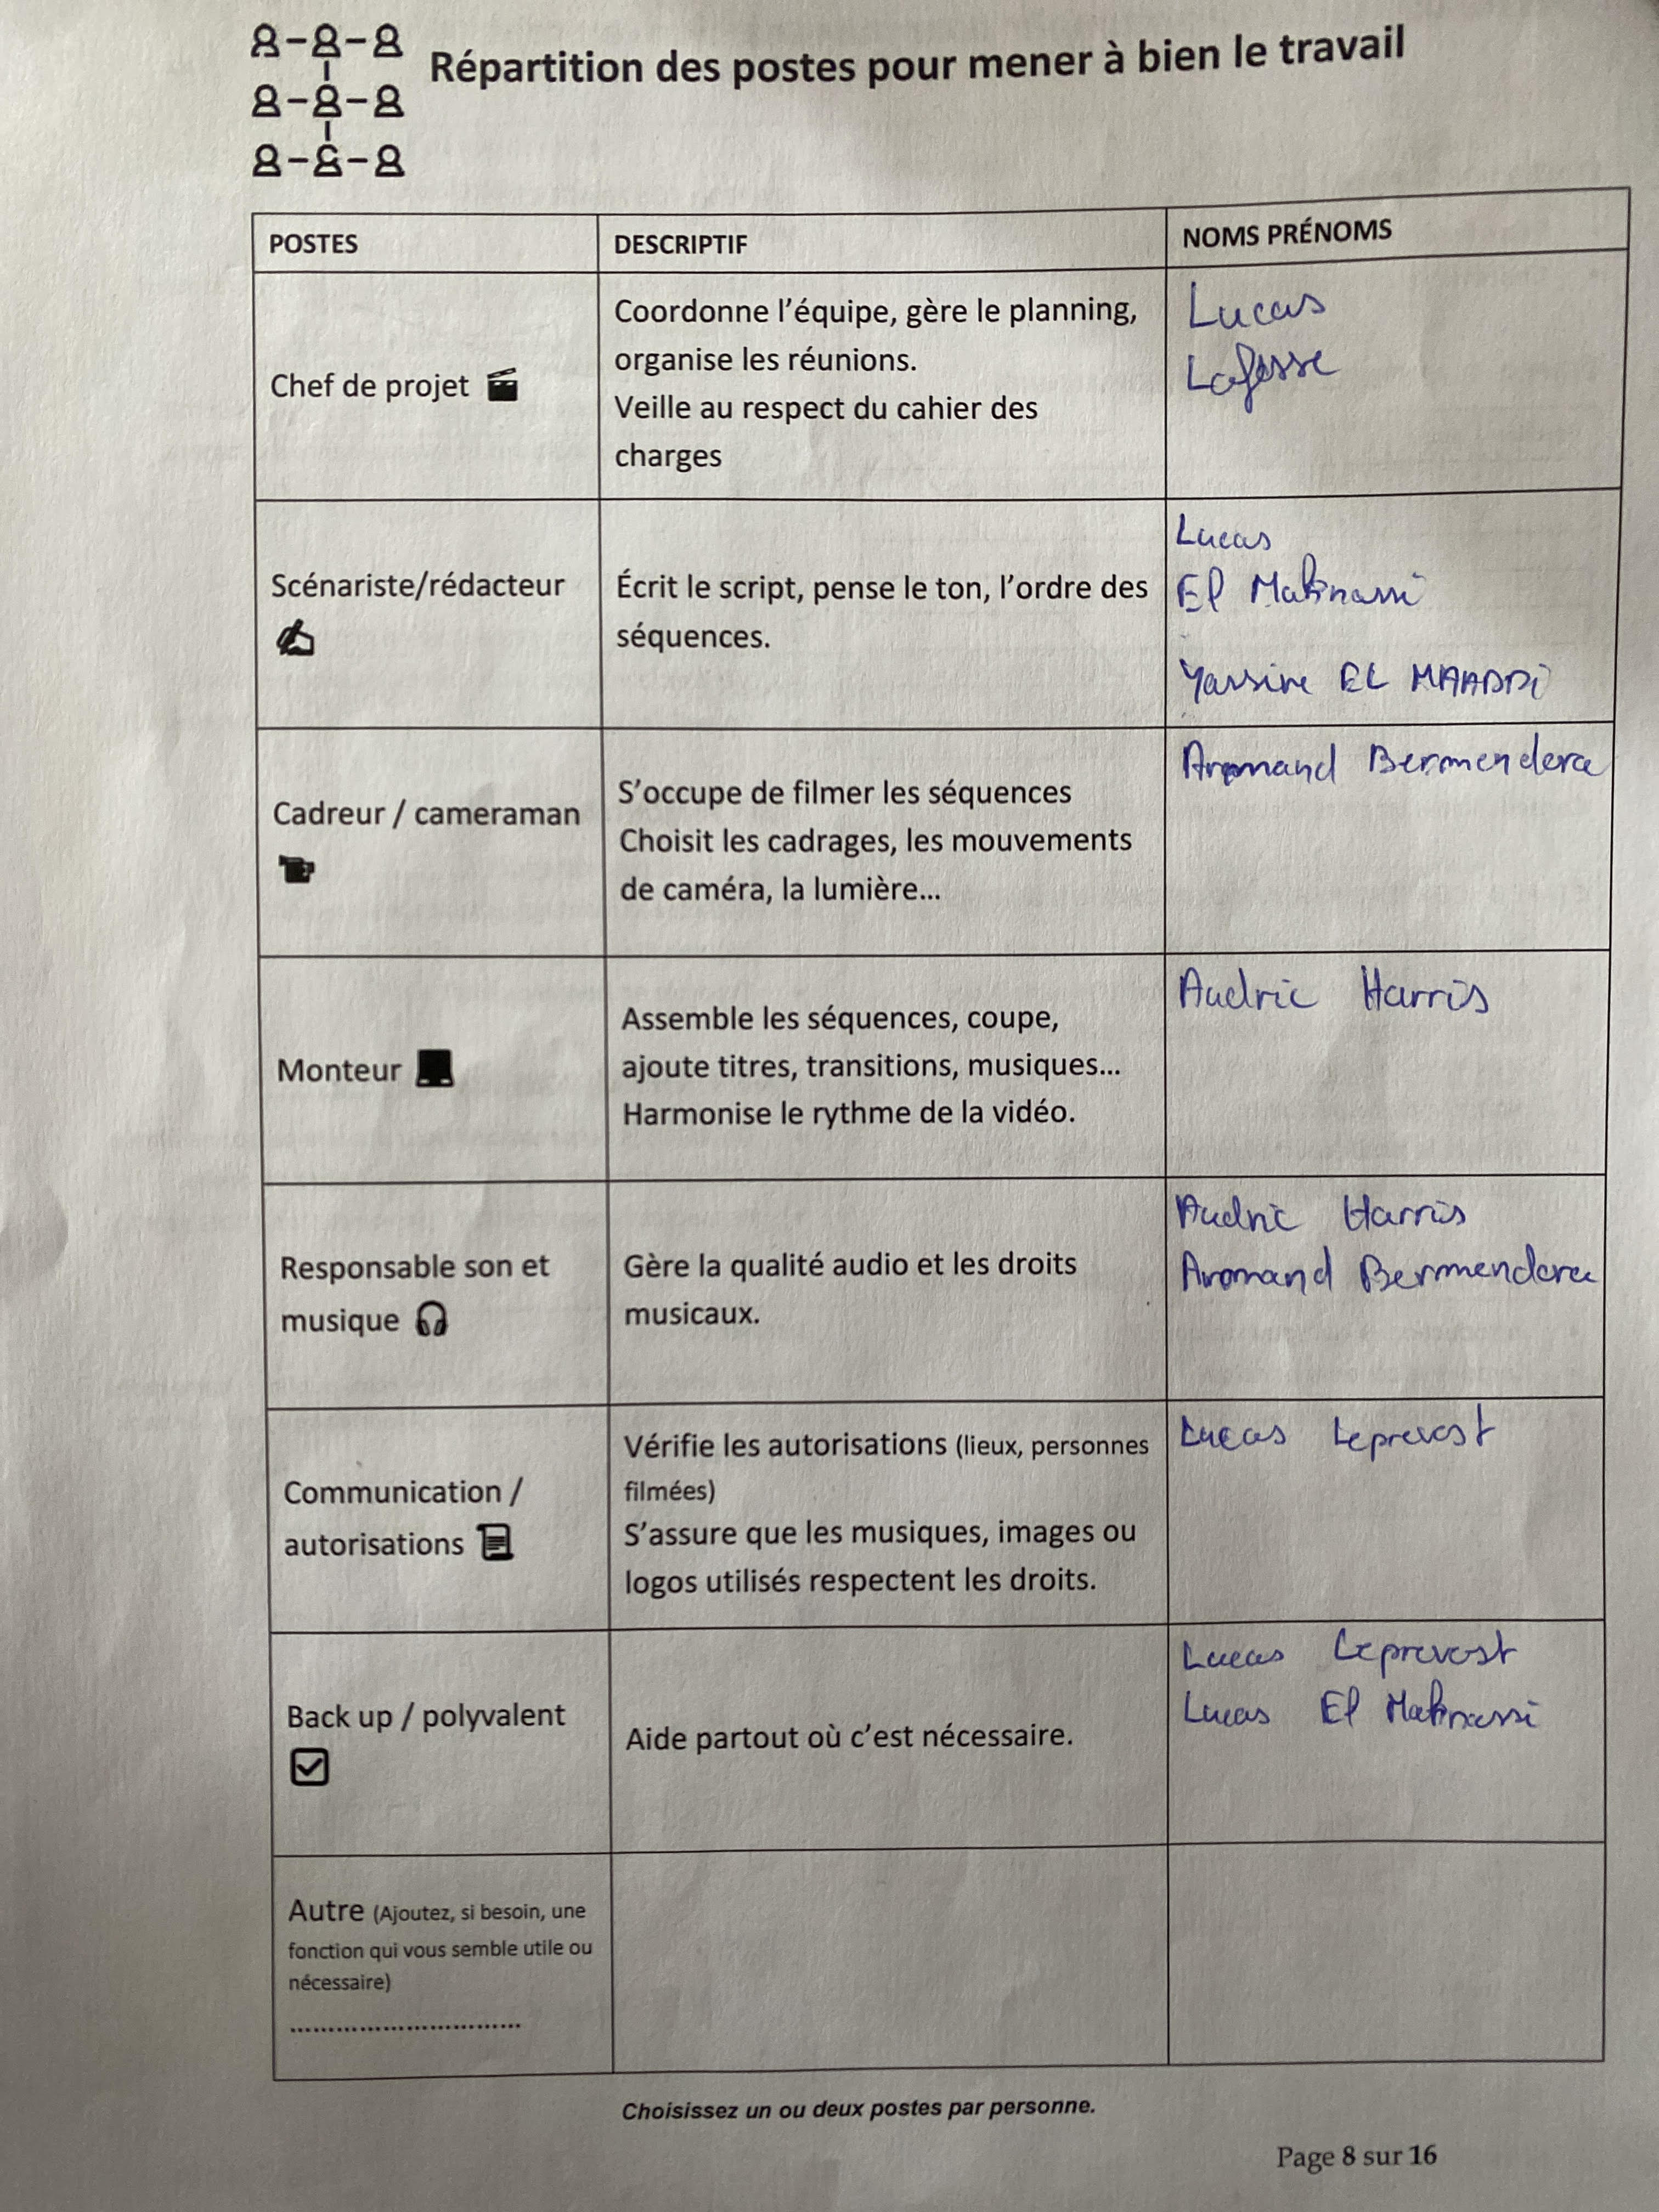 Répartition des postes pour mener à bien le travail
POSTES
DESCRIPTIF
NOMS PRÉNOMS
Chef de projet
Coordonne l'équipe, gère le planning,
organise les réunions.
Veille au respect du cahier des
charges
Lucas
Scénariste/rédacteur
Écrit le script, pense le ton, l'ordre des
séquences.
Lucas
El Maknassi
Yassine EL MAHDDI
Cadreur / cameraman
S'occupe de filmer les séquences
Choisit les cadrages, les mouvements
de caméra, la lumière...
Armand
Monteur
Assemble les séquences, coupe,
ajoute titres, transitions, musiques...
Harmonise le rythme de la vidéo.
Audric Harris
Responsable son et
musique
Gère la qualité audio et les droits
musicaux.
Audric Harris
Armand
Communication /
autorisations
Vérifie les autorisations (lieux, personnes
filmées)
S'assure que les musiques, images ou
logos utilisés respectent les droits.
Lucas Leprevost
Back up / polyvalent
Aide partout où c'est nécessaire.
Lucas Leprevost
Lucas El Maknassi
Autre (Ajoutez, si besoin, une
fonction qui vous semble utile ou
nécessaire)
..............................
Choisissez un ou deux postes par personne.
Page 8 sur 16